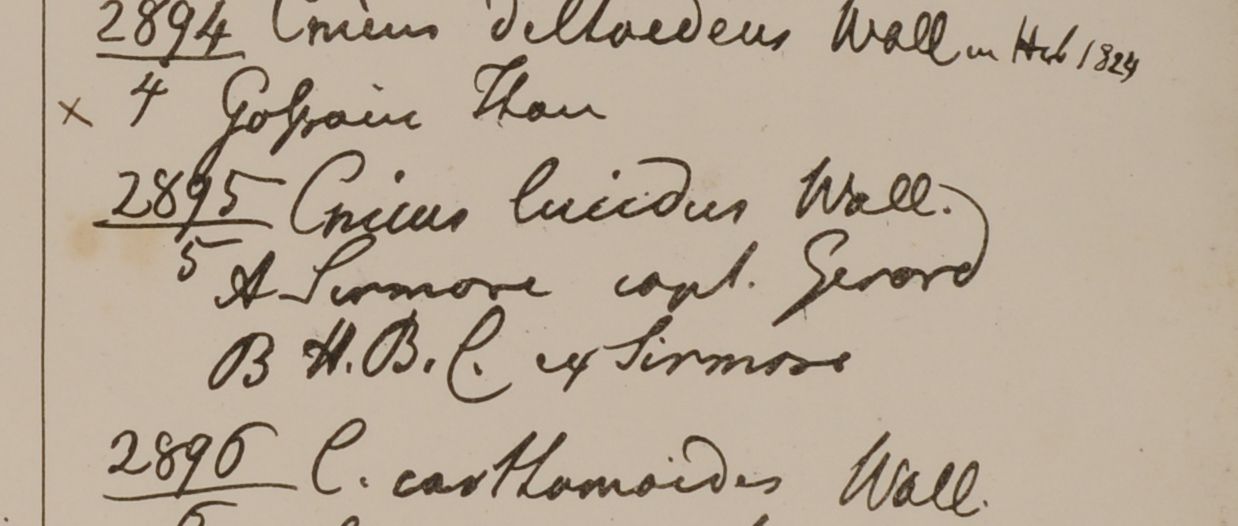 2894 Cnicus deltoedeus Wall in Herb 1824
x 4 Gosain Than
2895 Cnicus lucidus Wall.
5 A Sirmore capt. Gerard
B H.B.C. ex Sirmore
2896 C. carthamoides Wall.
6